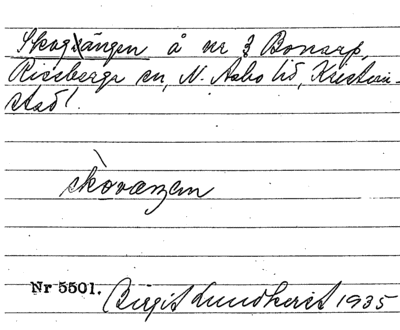 Skogsängen å nr 3 Bonarp,
Riseberga sn, N. Åsbo hd, Kristian-
stad l.
skòvæŋen
Nr 5501. Birgit Lundkvist 1935